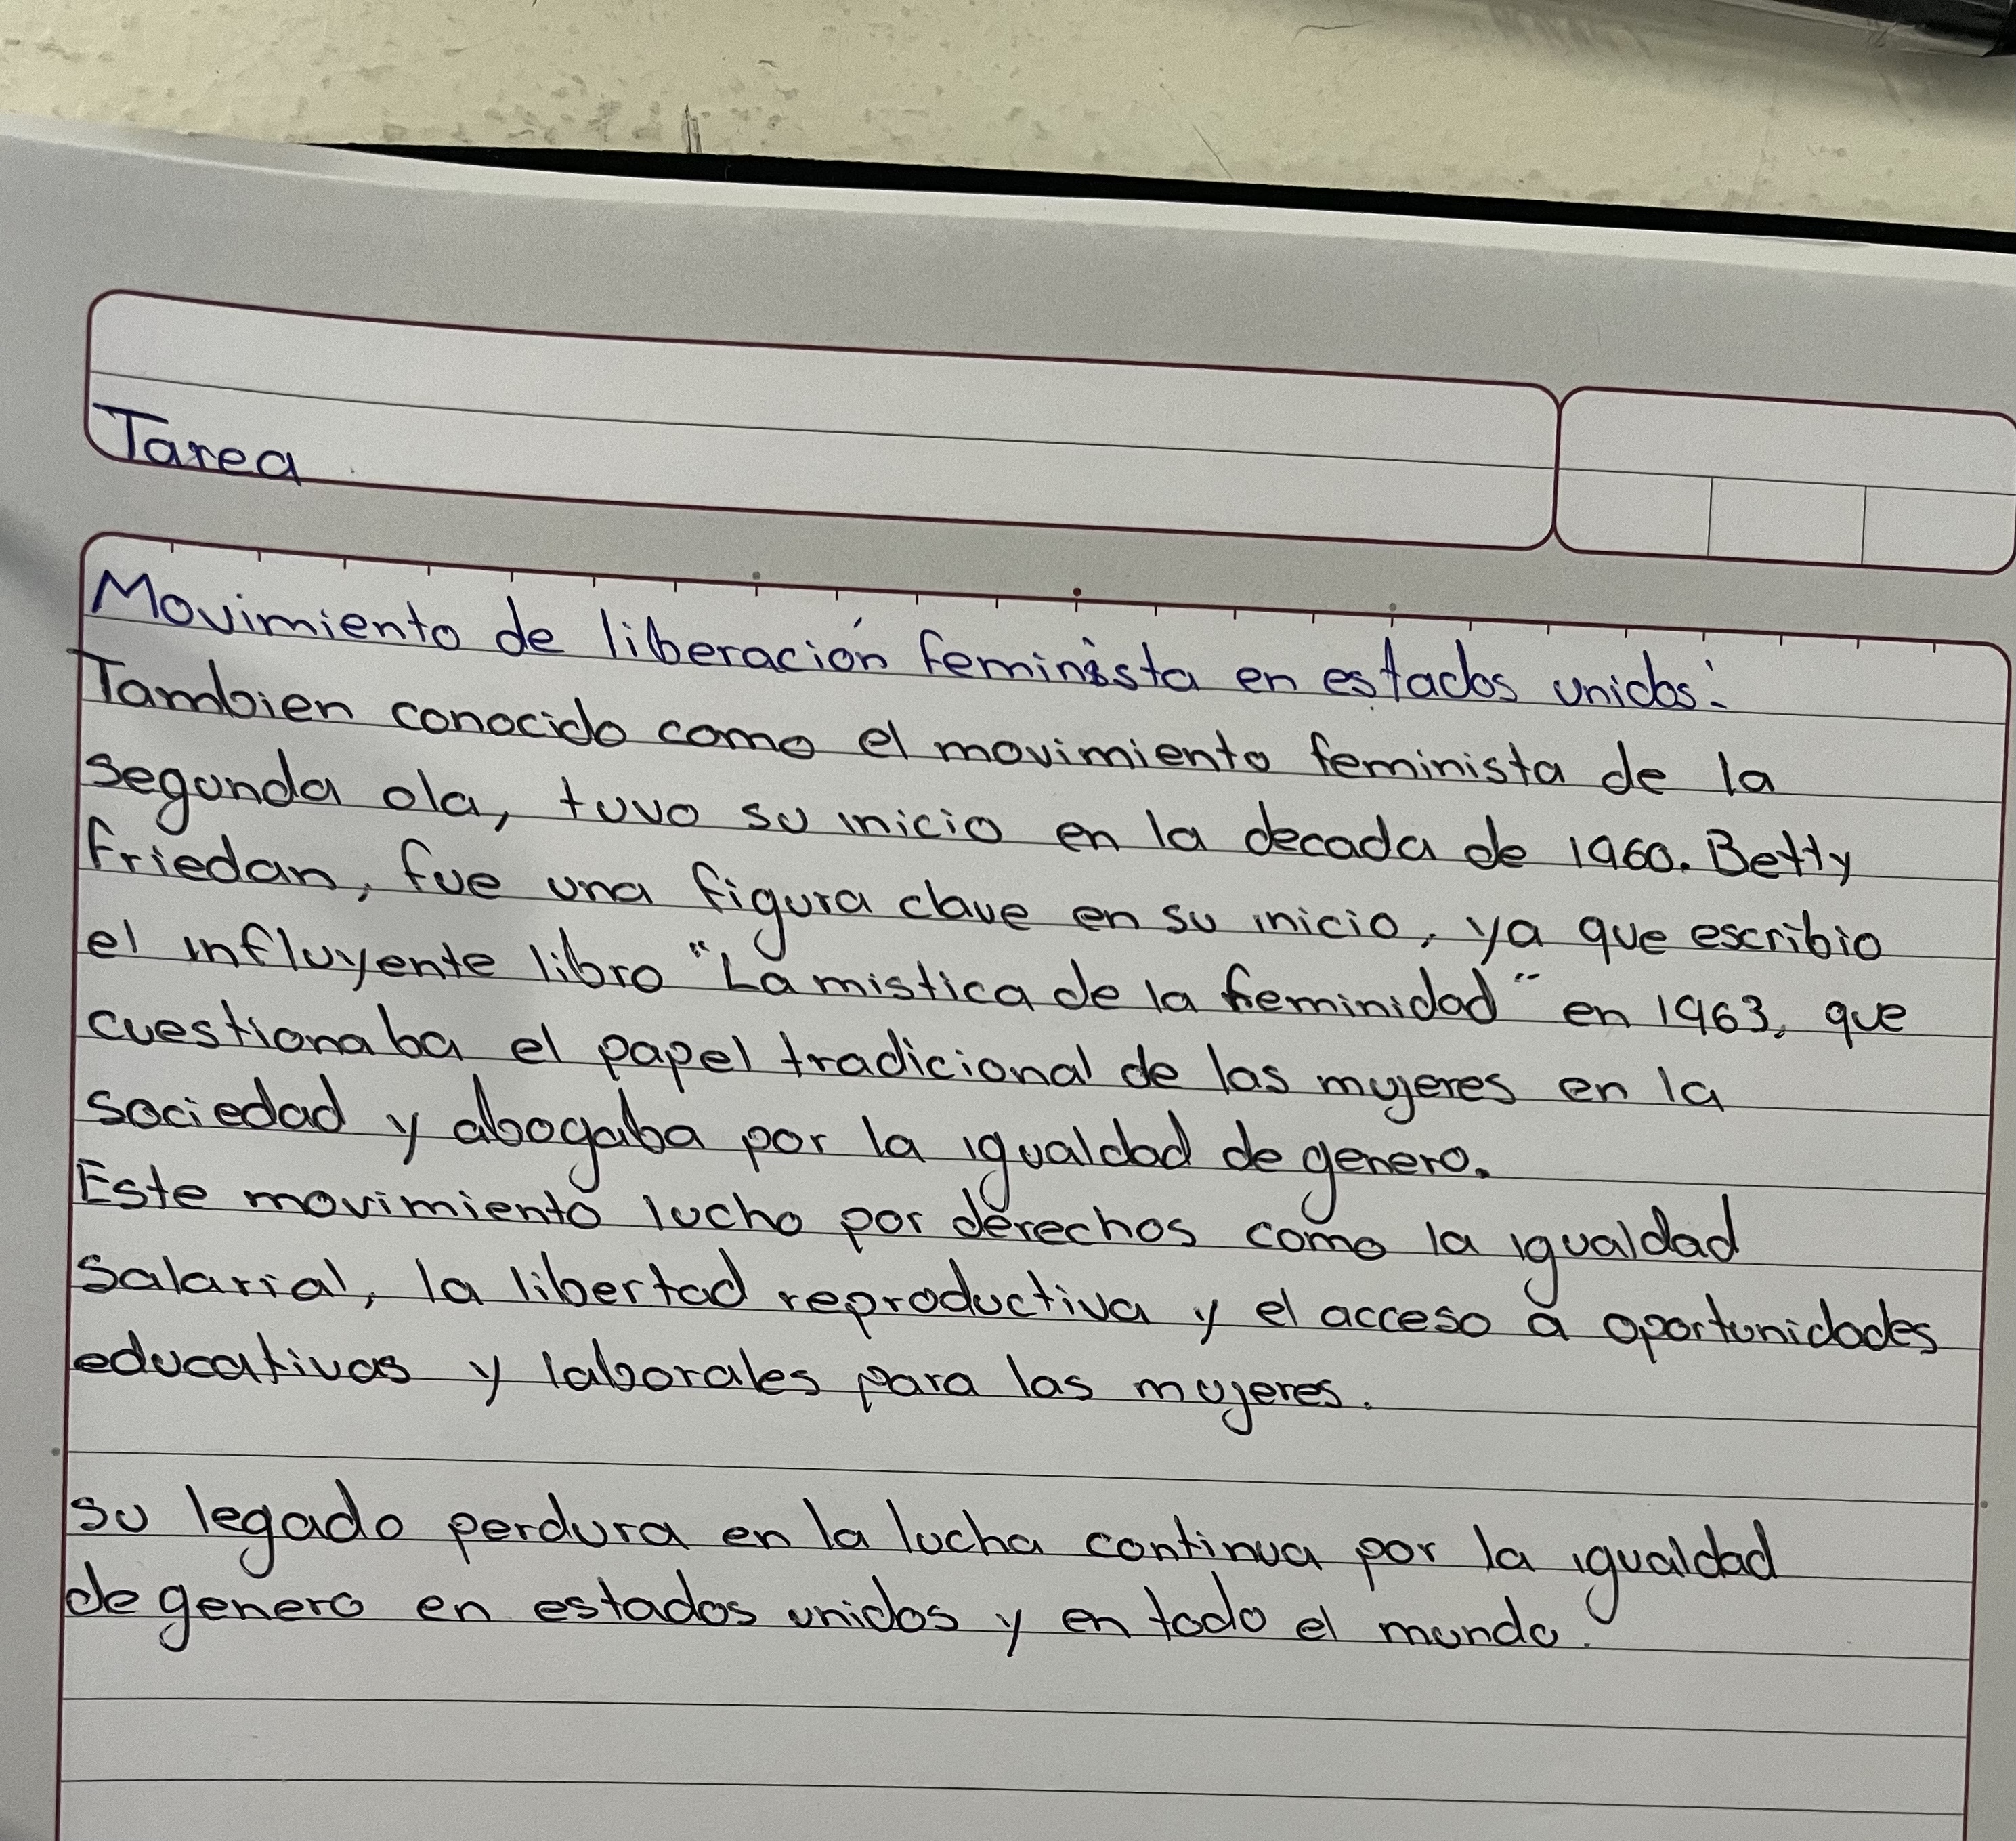 Tarea
Movimiento de liberación feminista en estados unidos:
Tambien conocido como el movimiento feminista de la
segunda ola, tuvo su inicio en la decada de 1960. Betty
Friedan, fue una figura clave en su inicio, ya que escribio
el influyente libro "La mistica de la feminidad" en 1963, que
cuestionaba el papel tradicional de las mujeres en la
sociedad y abogaba por la igualdad de genero.
Este movimiento lucho por derechos como la igualdad
salarial, la libertad reproductiva y el acceso a oportunidades
educativas y laborales para las mujeres.
su legado perdura en la lucha continua por la igualdad
de genero en estados unidos y en todo el mundo.